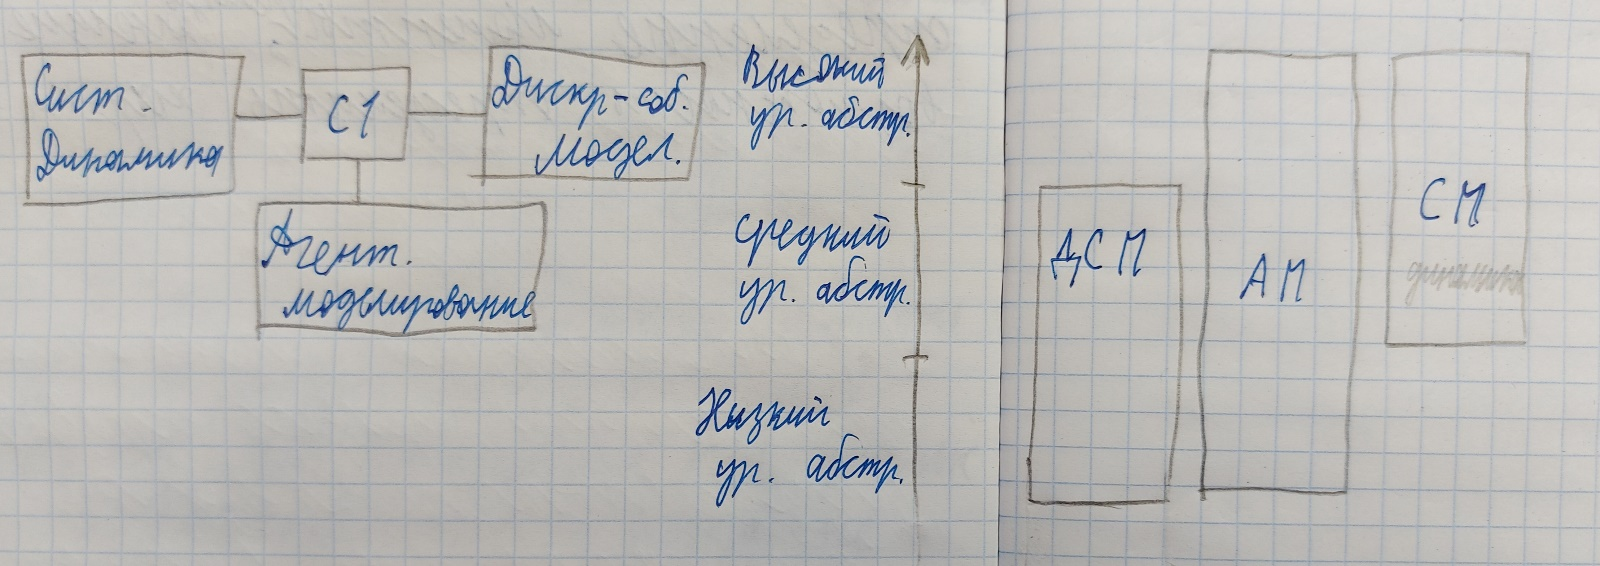 Сист.
Динамика
С1
Дискр-соб.
Модел.
Агент.
моделирование
Высокий
ур. абстр.
Средний
ур. абстр.
Низкий
ур. абстр.
ДСМ
АМ
СМ
динамика